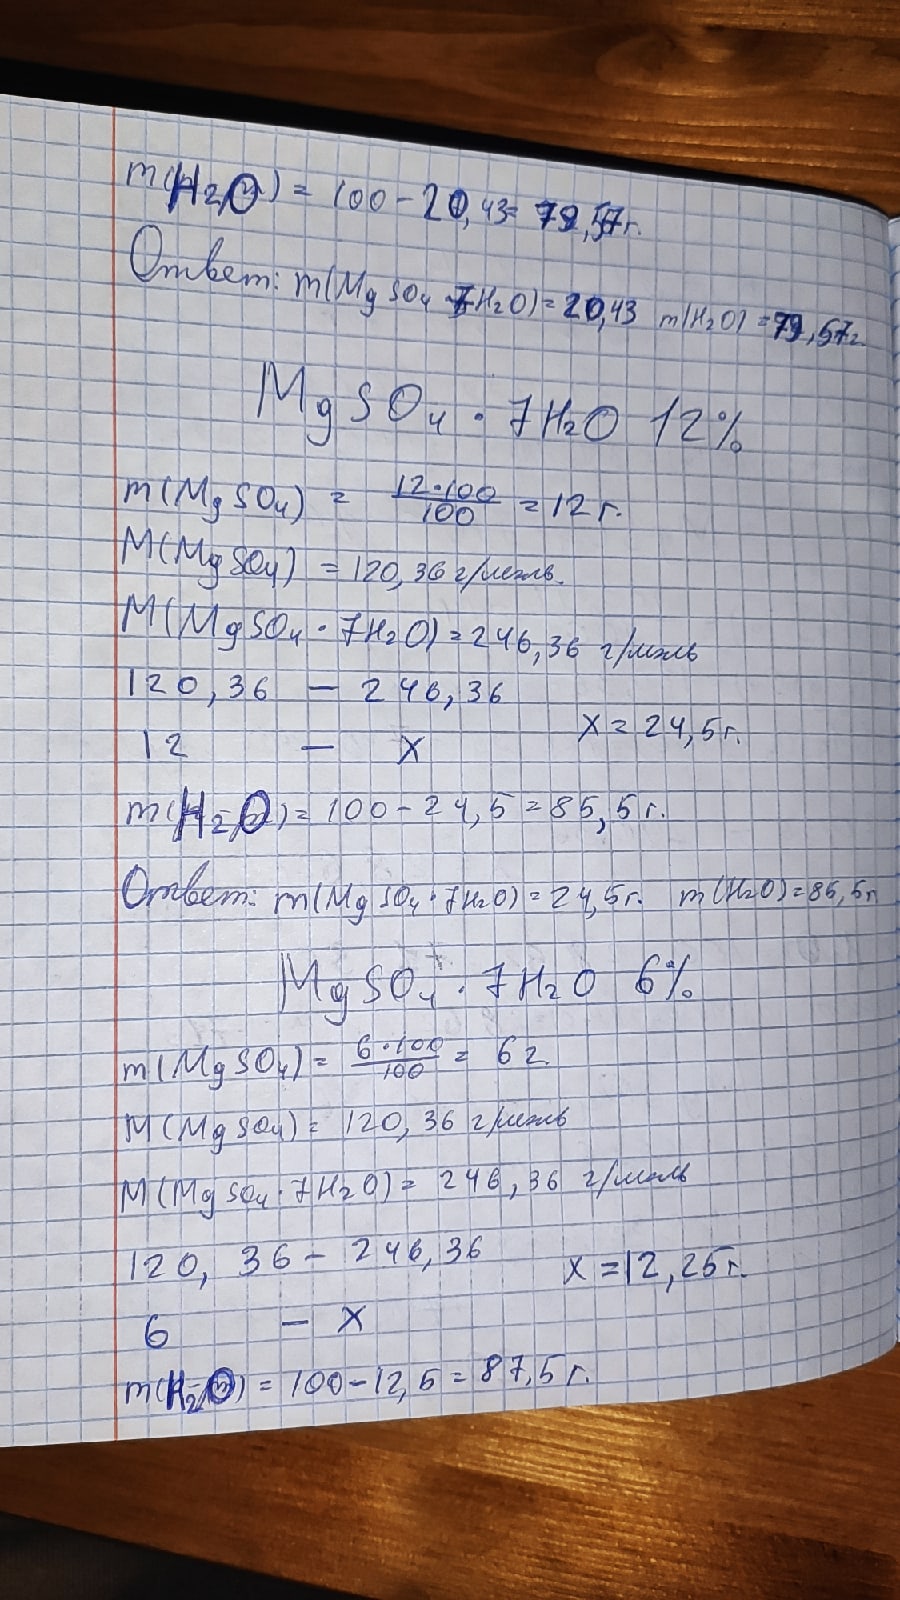 m(H2O) = 100 - 20,43 = 79,57 г.
Ответ: m(MgSO4 · 7H2O) = 20,43 m(H2O) = 79,57 г.
MgSO4 · 7H2O 12%
m(MgSO4) = 12·100/100 = 12 г.
M(MgSO4) = 120,36 г/моль.
M(MgSO4 · 7H2O) = 246,36 г/моль
120,36 — 246,36
12 — x x = 24,5 г.
m(H2O) = 100 - 24,5 = 85,5 г.
Ответ: m(MgSO4 · 7H2O) = 24,5 г. m(H2O) = 85,5 г
MgSO4 · 7H2O 6%
m(MgSO4) = 6·100/100 = 6 г.
M(MgSO4) = 120,36 г/моль
M(MgSO4 · 7H2O) = 246,36 г/моль
120,36 — 246,36 x = 12,25 г.
6 — x
m(H2O) = 100 - 12,5 = 87,5 г.